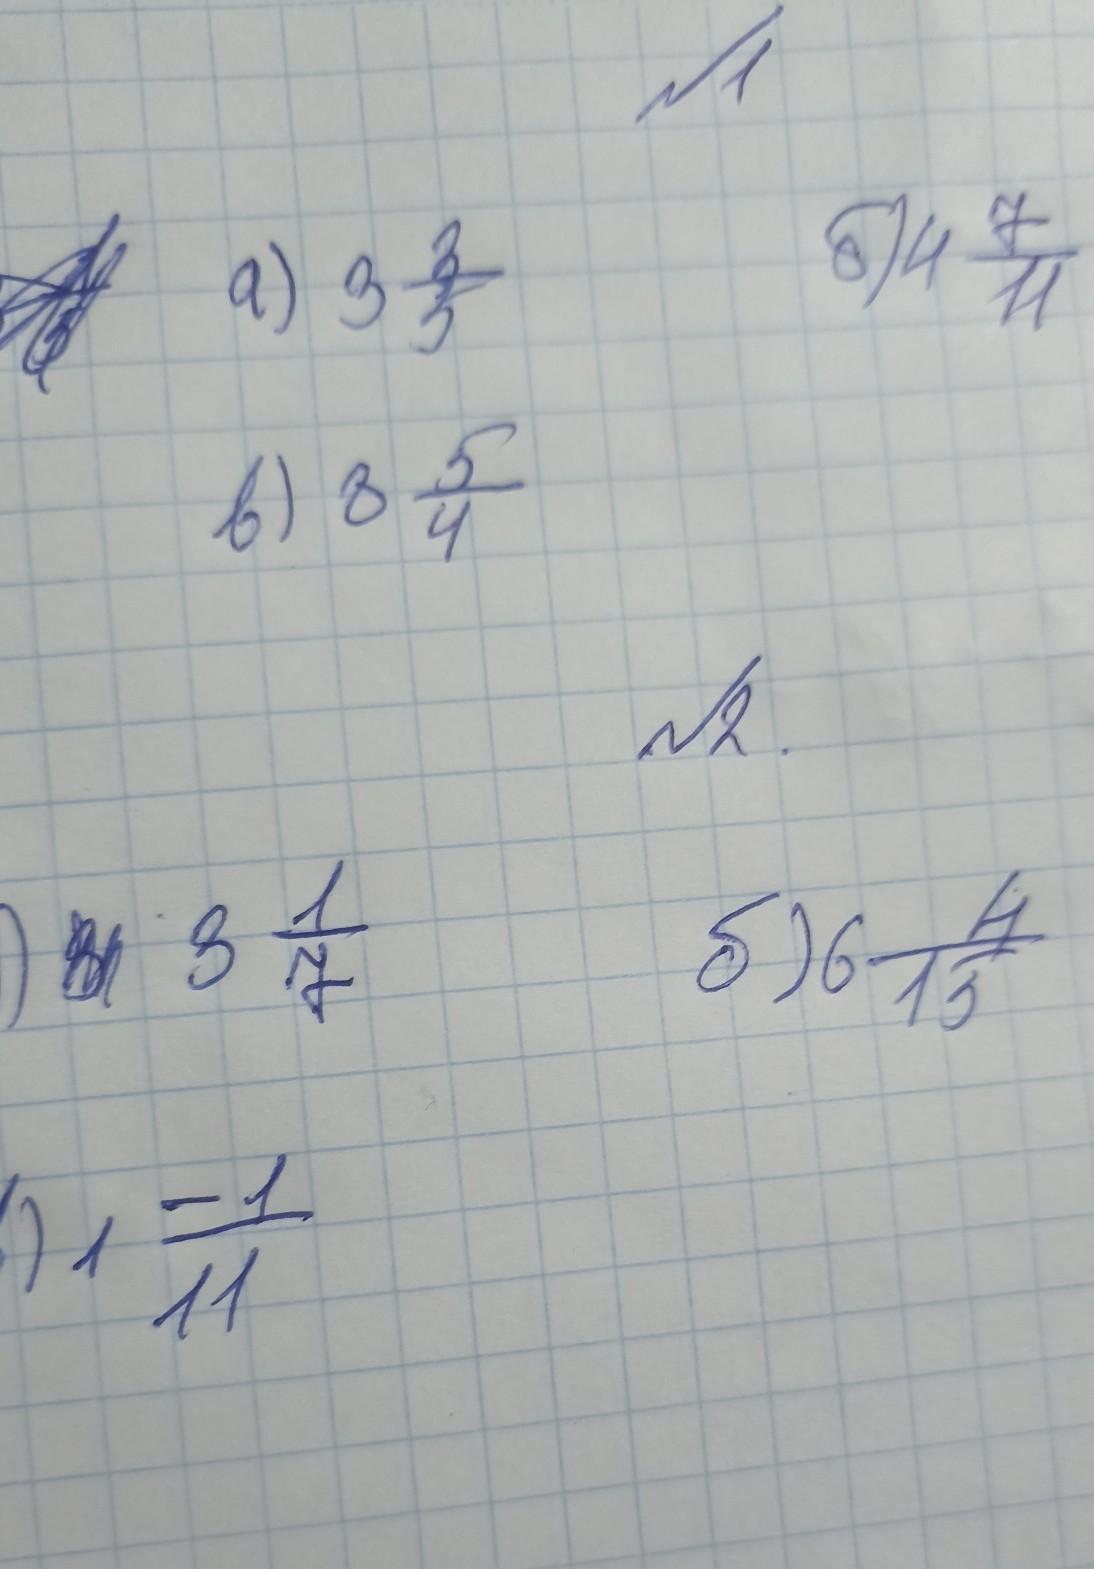 №1
а) 3 3/5 б) 4 7/11
в) 8 5/4
№2.
) 3 1/7 б) 6 4/15
) 1 -1/11